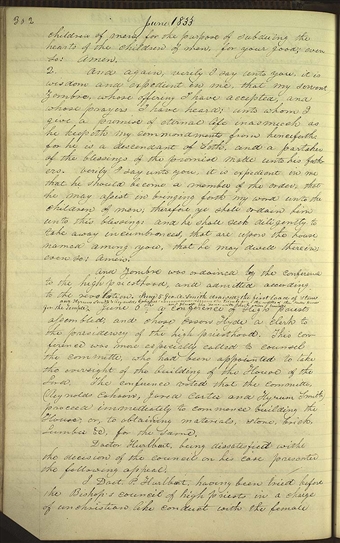 302 June 1833
children of men, for the purpose of subduing the
hearts of the children of men, for your good; even
so: Amen.
2. And again, verily I say unto you, it is
wisdom and expedient in me, that my servant
Zombre, whose offering I have accepted, and
whose prayers I have heard; unto whom I
give a promise of eternal life inasmuch as
he keepeth my commandments from henceforth;
for he is a descendant of Seth, and a partaker
of the blessings of the promise made unto his fath-
ers. Verily I say unto you, it is expedient in me
that he should become a member of the order, that
he may assist in bringing forth my word unto the
children of men; therefore ye shall ordain him
unto this blessing: and he shall seek diligently to
take away incumbrances, that are upon the house
named among you, that he may dwell therein;
even so: Amen.
And Zombre was ordained by the conference
to the high priesthood, and admitted according
to the revelation.
June 6th a Conference of High Priests
assembled, and chose Orson Hyde a clerk to
the presidency of the high priesthood. This con-
ference was more especially called to counsel
the committee, who had been appointed to take
the oversight of the building of the House of the
Lord. The conference voted that the committee,
Reynolds Cahoon, Jared Carter and Hyrum Smith,
proceed immediately to commence building the
House; or, to obtaining materials, stone, brick,
Lumber &c. for the same.
Doctor Hurlbut, being dissatisfied with
the decision of the council on his case presented
the following appeal:
I Doct. P. Hurlbut, having been tried before
the Bishop's council of high priests on a charge
of unchristian like conduct with the female